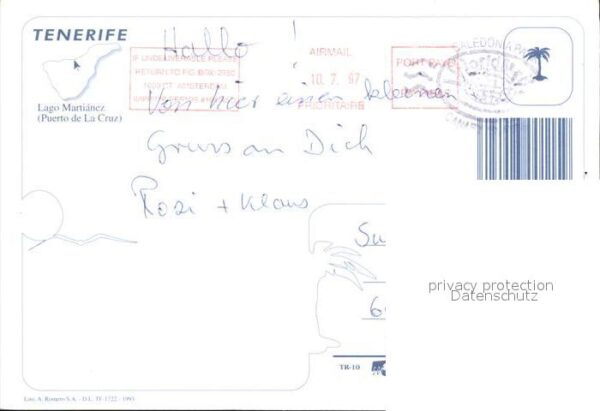 TENERIFE
Lago Martiánez
(Puerto de La Cruz)
Hallo !
Von hier einen kleinen
Gruss an Dich
Rosi + Klaus
IF UNDELIVERABLE PLEASE
RETURN TO P.O. BOX
AMSTERDAM
AIRMAIL
10. 7. 97
PRIORITAIRE
PORT PAYÉ
CALEDONIA
Su
6
privacy protection
Datenschutz
TR-10
Lito. A. Romero S.A. - D.L. TF 1722 - 1993